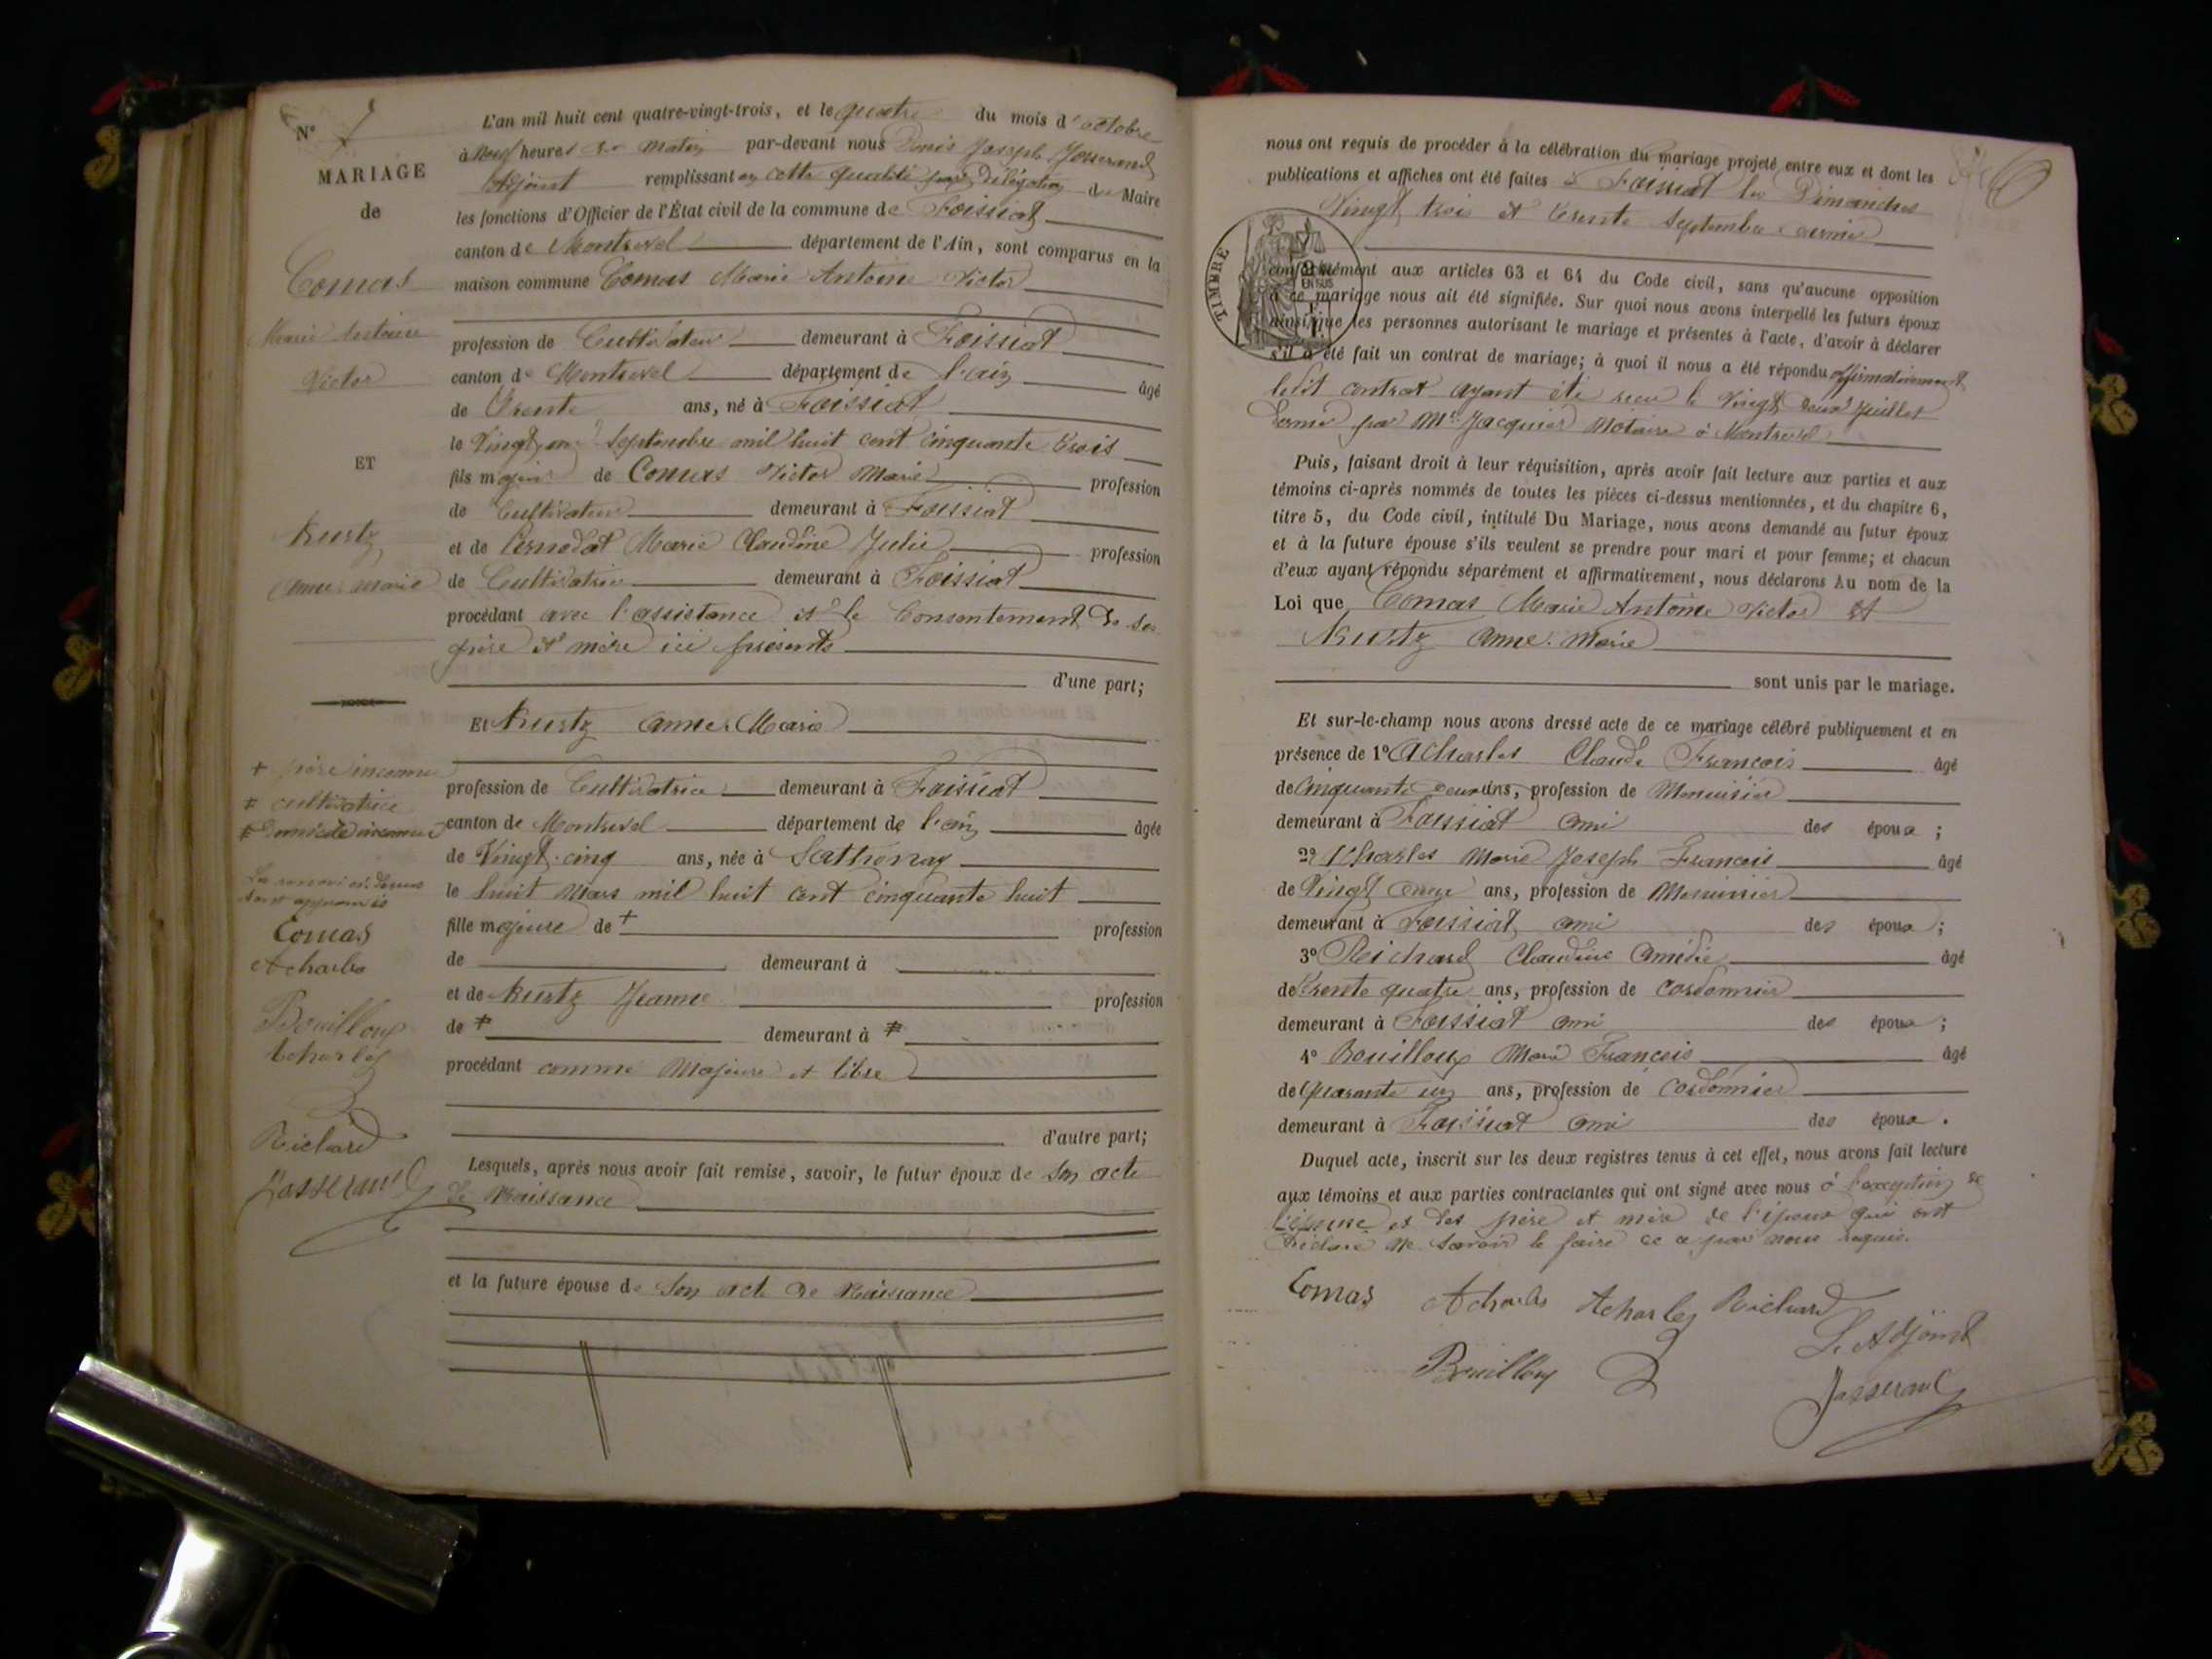 N° 7
MARIAGE
de
Comas
Marie Antoine
Victor
ET
Kurtz
Anne Marie
+ père inconnu
# cultivatrice
# domicile inconnu
Les renvois ci-dessus
sont approuvés
Comas
Acharles
Bouilloux
Acharles
Richard
Jasserand
L'an mil huit cent quatre-vingt-trois, et le quatre du mois d'octobre
à neuf heures du matin par-devant nous Denis Joseph Josserand
Adjoint remplissant en cette qualité par délégation du Maire
les fonctions d'Officier de l'État civil de la commune de Foissiat
canton de Montrevel département de l'Ain, sont comparus en la
maison commune Comas Marie Antoine Victor
profession de Cultivateur demeurant à Foissiat
canton de Montrevel département de l'ain âgé
de Trente ans, né à Foissiat
le Vingt un Septembre mil huit cent cinquante trois
fils majeur de Comas Victor Marie profession
de Cultivateur demeurant à Foissiat
et de Marie Claudine Julie profession
de Cultivatrice demeurant à Foissiat
procédant avec l'assistance et le Consentement de ses
père et mère ici présents
d'une part;
Et Kurtz Anne Marie
profession de Cultivatrice demeurant à Foissiat
canton de Montrevel département de l'ain âgée
de Vingt-cinq ans, née à Sathonay
le huit Mars mil huit cent cinquante huit
fille majeure de + profession
de demeurant à
et de Kurtz Jeanne profession
de # demeurant à #
procédant comme Majeure et libre
d'autre part;
Lesquels, après nous avoir fait remise, savoir, le futur époux de son acte
de Naissance
et la future épouse de Son acte de Naissance
nous ont requis de procéder à la célébration du mariage projeté entre eux et dont les
publications et affiches ont été faites à Foissiat les Dimanches
Vingt trois et trente Septembre dernier
TIMBRE
conformément aux articles 63 et 64 du Code civil, sans qu'aucune opposition
à ce mariage nous ait été signifiée. Sur quoi nous avons interpellé les futurs époux
ainsi que les personnes autorisant le mariage et présentes à l'acte, d'avoir à déclarer
s'il a été fait un contrat de mariage; à quoi il nous a été répondu affirmativement
ledit contrat ayant été reçu le Vingt deux Juillet
dernier par Me Jacquier Notaire à Montrevel
Puis, faisant droit à leur réquisition, après avoir fait lecture aux parties et aux
témoins ci-après nommés de toutes les pièces ci-dessus mentionnées, et du chapitre 6,
titre 5, du Code civil, intitulé Du Mariage, nous avons demandé au futur époux
et à la future épouse s'ils veulent se prendre pour mari et pour femme; et chacun
d'eux ayant répondu séparément et affirmativement, nous déclarons Au nom de la
Loi que Comas Marie Antoine Victor et
Kurtz Anne Marie
sont unis par le mariage.
Et sur-le-champ nous avons dressé acte de ce mariage célébré publiquement et en
présence de 1° Acharles Claude François âgé
de Cinquante deux ans, profession de Menuisier
demeurant à Foissiat ami des époux ;
2° Acharles Marie Joseph François âgé
de Vingt ans, profession de Menuisier
demeurant à Foissiat ami des époux ;
3° Richard Claudius Amédée âgé
de Trente quatre ans, profession de cordonnier
demeurant à Foissiat ami des époux ;
4° Bouilloux Marie François âgé
de Quarante un ans, profession de Cordonnier
demeurant à Foissiat ami des époux .
Duquel acte, inscrit sur les deux registres tenus à cet effet, nous avons fait lecture
aux témoins et aux parties contractantes qui ont signé avec nous à l'exception de
l'épouse et des père et mère de l'époux qui ont
déclaré ne savoir le faire de ce par nous requis.
Comas Acharles Acharles Richard
L'Adjoint
Bouilloux
Jasserand